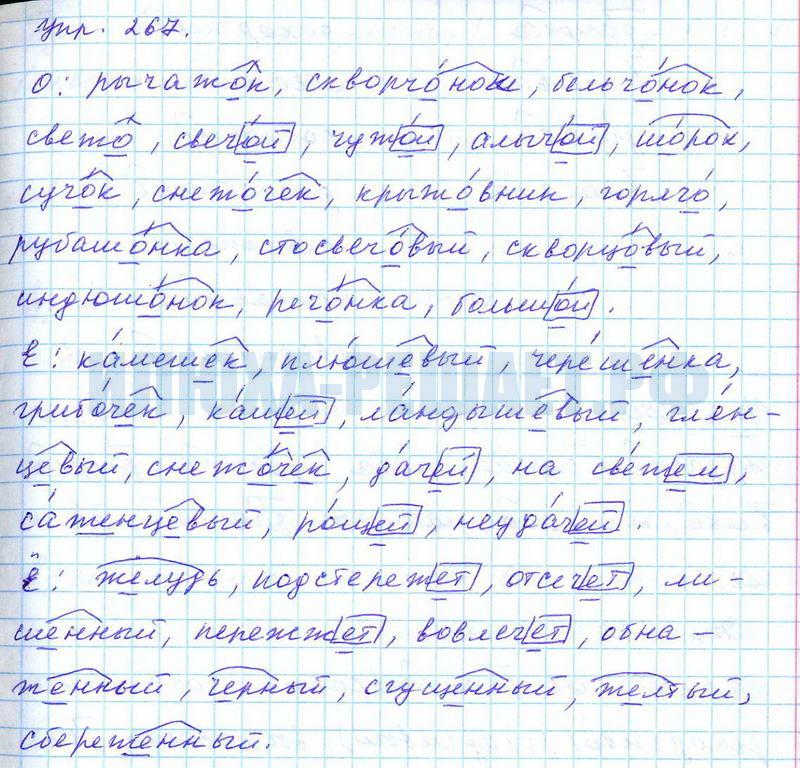 Упр. 267.
О: рычажо́к, скворчо́нок, бельчо́нок,
свежо́, свечо́й, чужо́й, алычо́й, шо́рох,
сучо́к, снежо́чек, крыжо́вник, горячо́,
рубашо́нка, стосвечо́вый, скворцо́вый,
индюшо́нок, речо́нка, большо́й.
Е: ка́мешек, плю́шевый, чере́шенка,
грибо́чек, ка́шей, ла́ндышевый, гля́н-
цевый, снежо́чек, да́чей, на све́жем,
са́женцевый, ро́щей, неуда́чей.
Ё: желудь, подстережет, отсечет, ли-
шенный, пережжет, вовлечет, обна-
женный, черный, сгущенный, желтый,
сбереженный.
ИЛЮХА-РЕШАЕТ.РФ